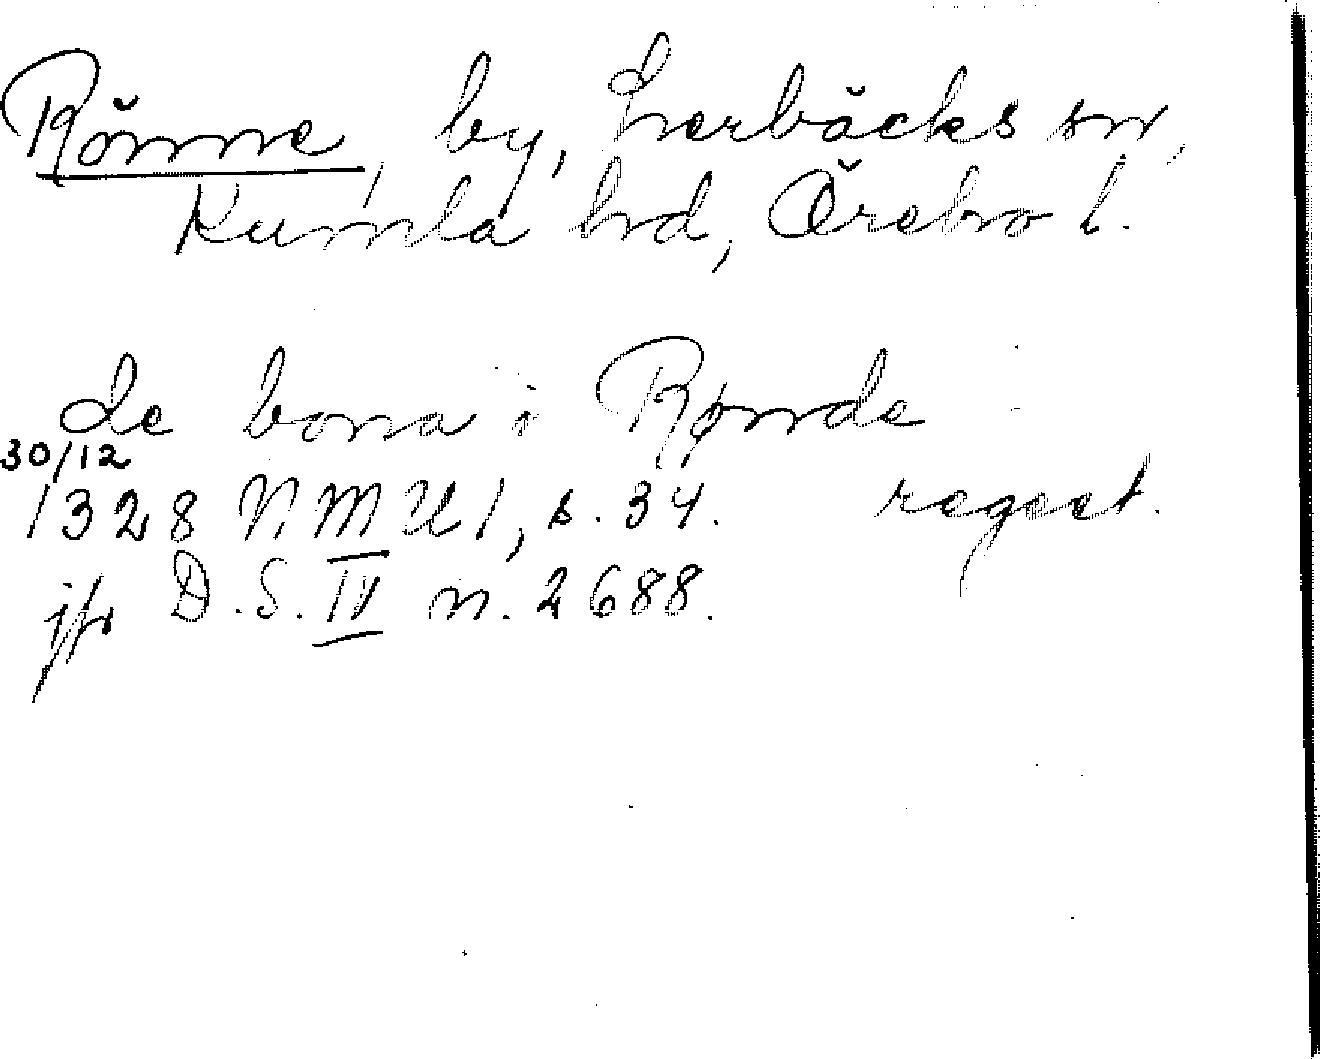 Rönne, by, Lerbäcks sn,
Kumla hd, Örebro l.
de bona i Rønde
30/12
1328 NMU 1, s. 34. regest.
jfr D.S. IV n. 2688.